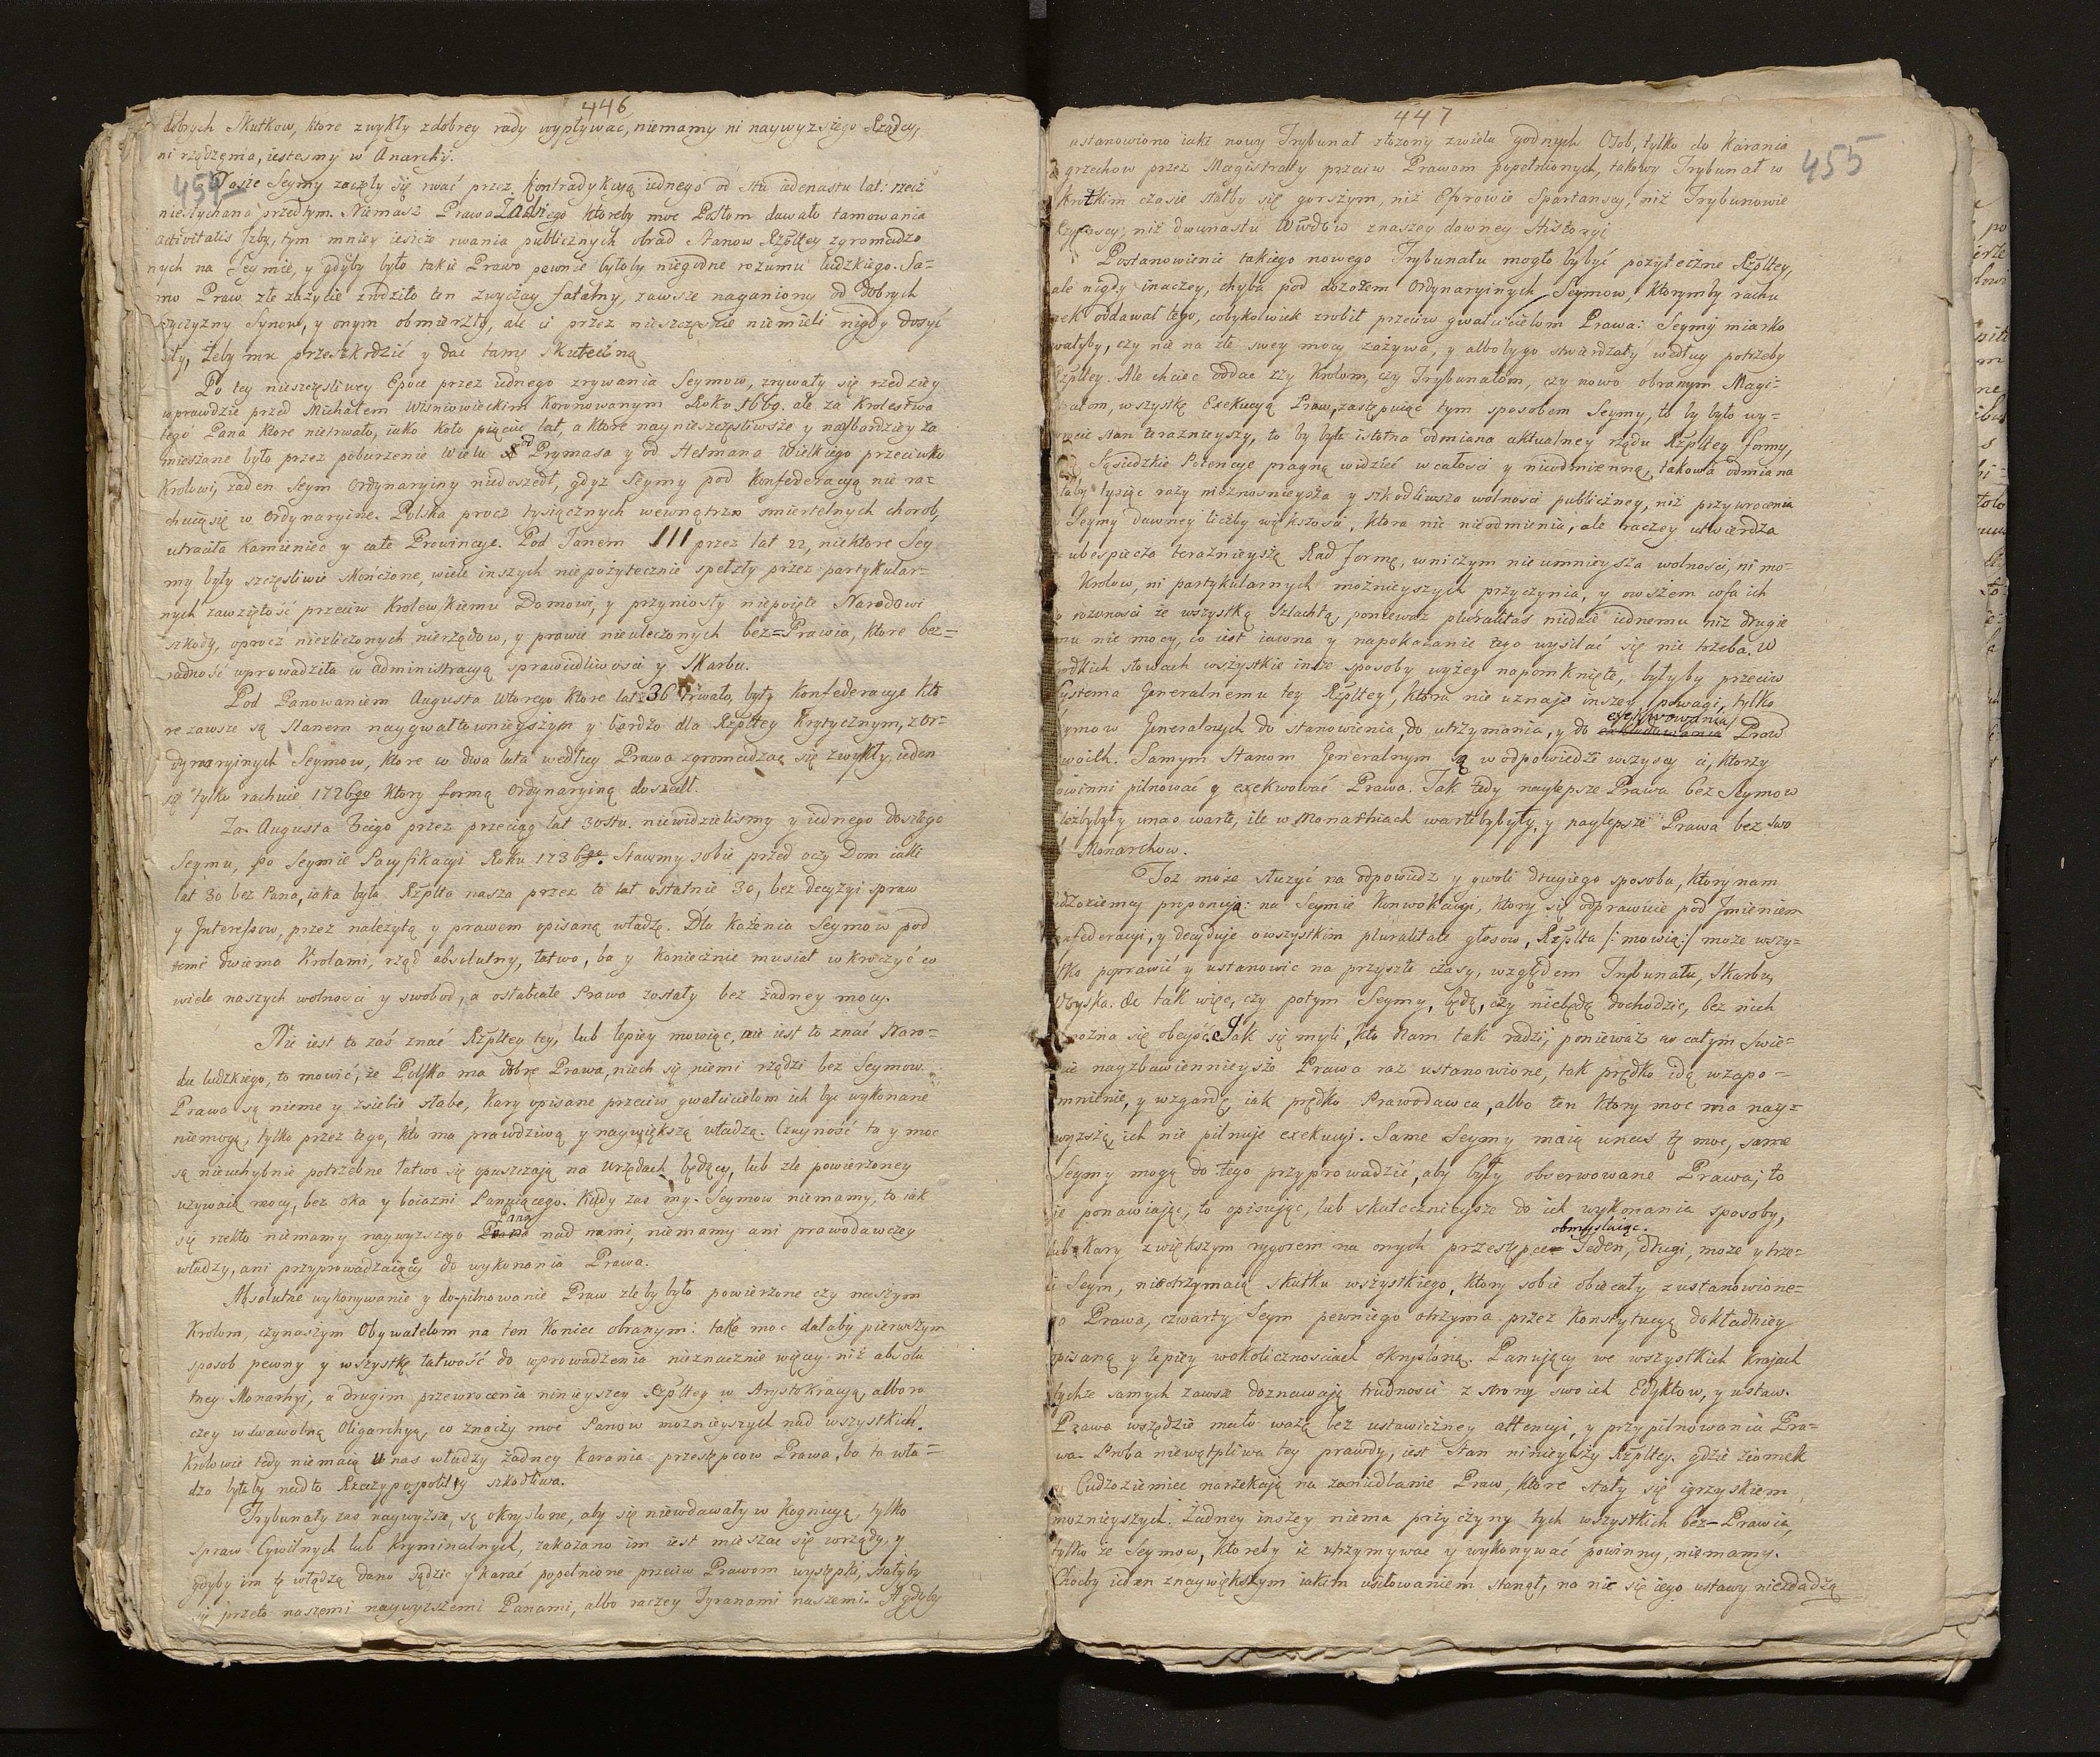 446
dobrych Skutkow, ktore zwykły zdobrey rady wypływać, niemamy ni naywyzszego Rządcy,
ni rządzenia, iestesmy w Anarchij.
454
Nasze Seymy zaczęły się rwać przez kontradykcyą iednego od stu iedenastu lat: rzecz
niesłychana przedtym. Niemasz Prawa Zadnego ktoreby moc Posłom dawało tamowania
activitatis Izby, tym mniey ieszcze rwania publicznych obrad Stanow Rzpltey zgromadzo
nych na Seymie, y gdyby było takie Prawo pewnie byłoby niegodne rozumu ludzkiego. Sa=
mo Praw złe zażycie zrodziło ten zwyczay fatalny, zawsze naganiony od Dobrych
Oyczyzny Synow, y onym obmierzły, ale ci przez nieszczęście niemieli nigdy dosyć
siły, żeby mu przeszkodzić y dac tamę Skuteczną
Po tey nieszczęsliwey Epoce przez iednego zrywania Seymow, zrywały się rzedziey
wprawdzie przed Michałem Wiśniowieckim Koronowanym Roku 1669. ale za Krolestwa
tego Pana ktore nietrwało, iako koło pięciu lat, a ktore naynieszczęsliwsze y naybardziey za
mieszane było przez poburzenie wielu od Prymasa y od Hetmana Wielkiego przeciwko
Krolowi, zaden Seym Ordynaryiny niedoszedł, gdyz Seymy pod Konfederacyą nie ra=
chuią się w Ordynaryine. Polska procz tysiącznych wewnątrzn smiertelnych chorob,
utraciła Kamieniec y całe Prowincye. Pod Janem III przez lat 22, niektore Sey
my były szczęsliwie skończone, wiele inszych niepożytecznie spełzły przez partykular=
nych zawziętość przeciw Krolewskiemu Domowi, y przyniosły niepoięte Narodowi
szkody, oprocz niezliczonych nierządow, y prawie nieuleczonych bez=Prawia, ktore bez=
radność wprowadziła w administracyą sprawiedliwosci y Skarbu.
Pod Panowaniem Augusta Wtorego ktore lat 36 trwało, były Konfederacye kto
re zawsze są Stanem naygwałtownieyszym y bardzo dla Rzpltey Krytycznym, z or=
dynaryinych Seymow, ktore co dwa lata według Prawa zgromadzac się zwykły, ieden
się tylko rachuie 1726go ktory formą Ordynaryiną doszedł.
Za Augusta 3ciego przez przeciąg lat 30stu. niewidzielismy y iednego doszłego
Seymu, po Seymie Pacyfikacyi Roku 1736go. Stawmy sobie przed oczy Dom iaki
lat 30 bez Pana, iaka była Rzplta nasza przez te lat ostatnie 30, bez decyzyi spraw
y Interessow, przez nalezytą y prawem opisaną władzę. Dla każenia Seymow pod
temi dwiema Krolami, rząd absolutny, łatwo, ba y koniecznie musiał wkroczyć w
wiele naszych wolnosci y swobod, a osłabiałe Prawa zostały bez żadney mocy.
Nie iest to zaś znać Rzpltey tey, lub lepiey mowiąc, nie iest to znać Naro=
du ludzkiego, to mowić, że Polska ma dobre Prawa, niech się niemi rządzi bez Seymow.
Prawa są nieme y zsiebie słabe, Kary opisane przeciw gwałcicielom ich byc wykonane
niemogą, tylko przez tego, kto ma prawdziwą y naywiększą władzą. Czuyność ta y moc
są nieuchybnie potrzebne łatwo się opuszczają na Urzędach będący, lub zle powierzoney
uzywaią mocy, bez oka y boiazni Panuiącego. Kiedy zas my Seymow niemamy, to iak
się rzekło niemamy naywyzszego Pana nad nami, niemamy ani prawodawczey
władzy, ani przyprowadzaiącey do wykonania Prawa.
Absolutne wykonywanie y do-pilnowanie Praw zleby było powierzone czy naszym
Krolom, czy naszym Obywatelom na ten Koniec obranym: taka moc dałaby pierwszym
sposob pewny y wszystkę łatwość do wprowadzenia nieznacznie więcey niż absolu
tney Monarhyi, a drugim przewrocenia ninieyszey Rzpltey w Arystokracyą, albo ra
czey w swawolną Oligarchyą, co znaczy moc Panow moznieyszych nad wszystkich.
Krolowie tedy niemaią u nas władzy żadney Karania przestępcow Prawa, bo ta wła=
dza byłaby nadto Rzeczypospolitey szkodliwa.
Trybunały zas naywyższe, są okryslone, aby się niewdawały w Kognicyą, tylko
spraw Cywilnych lub Kryminalnych, zakazano im iest mieszac się wrządy, y
gdyby im tę władzą dano sądzic y karać popełnione przeciw Prawom występki, stałyby
się przeto naszemi naywyzszemi Panami, albo raczey Tyranami naszemi. A gdyby
447
455
ustanowiono iaki nowy Trybunał złozony zwielu godnych Osob, tylko do Karania
grzechow przez Magistraty przeciw Prawom popełnionych, takowy Trybunał w
krotkim czasie stałby się gorszym, niż Eforowie Spartanscy, niż Trybunowie
Rzymscy, niż dwunastu Wodzow znaszey dawney Historyi
Postanowienie takiego nowego Trybunału mogło by byś pożyteczne Rzpltey,
ale nigdy inaczey, chyba pod dozorem Ordynaryinych Seymow, ktorymby rachu
nek oddawał tego, cobykolwiek zrobił przeciw gwałcicielom Prawa: Seymy miarko
wałyby, czy nie na złe swey mocy zażywa, y albo by go stwierdzały według potrzeby
Rzpltey. Ale chciec oddac czy Krolom, czy Trybunałom, czy nowo obranym Magi=
stratom, wszystkę Exekucyą Praw, zastępuiąc tym sposobem Seymy, to by było wy=
wrocie stan terazniejszy, to by była istotna odmiana aktualney rządu Rzpltey formy,
Sąsiedzkie Potencye pragną widzieć w całosci y nieodmienną, takowa odmiana
byłaby tysiąc razy nieznosnieysza y szkodliwsza wolnosci publiczney, niż przywrocenia
Seymy dawney liczby większosci, ktora nic nieodmienia, ale raczey utwierdza
ubespiecza teraznieyszą Rad formę, wniczym nie umnieysza wolnosci, ni mo=
Krolow, ni partykularnych możnieyszych przyczynia, y owszem cofa ich
rownosci ze wszystką Szlachtą, ponieważ pluralitas niedaie iednemu niz drugie
mu nic mocy, co iest iawna y napokazanie tego wysilać się nie trzeba. W
krotkich słowach wszystkie insze sposoby wyżey napomknięte, byłyby przeciw
systema Generalnemu tey Rzpltey, ktora nie uznaje inszey powagi, tylko
Seymow Generalnych do stanowienia, do utrzymania, y do exekwowania Praw
swoich. Samym Stanom Generalnym są w odpowiedzi wszyscy ci, ktorzy
powinni pilnować y exekwować Prawa. Tak tedy naylepsze Prawa bez Seymow
tożby były u nas warte, ile w Monarhiach warte by były, y naylepsze Prawa bez swo
ich Monarchow.
Toż może służyć na odpowiedz y gwoli drugiego sposobu, ktory nam
cudzoziemcy proponują: na Seymie Konwokacyi, ktory się odprawuie pod Imieniem
Konfederacyi, y decyduje o wszystkim pluralitate głosow, Rzplta /: mowią :/ może wszy=
stko poprawić y ustanowic na przyszłe czasy, względem Trybunału, Skarbu,
Woyska. Ac tak więc, czy potym Seymy, będą, czy niebędą dochodzic, bez nich
można się obeyść. Jak się myli, kto Nam tak radzi; ponieważ w całym świe=
cie nayzbawiennieysze Prawa raz ustanowione, tak prędko idą wzapo=
mnienie, y wzgardę, iak prędko Prawodawca, albo ten ktory moc ma nay=
wyzszą, ich nie pilnuje exekucyi. Same Seymy maią u nas tę moc, same
Seymy mogą do tego przyprowadzić, aby były obserwowane Prawa, to
ie ponawiając, to opisując, lub skutecznieysze do ich wykonania sposoby,
lub Kary zwiększym rygorem na onych przestępce obmyslając. Jeden, drugi, może y trze=
ci Seym, nieotrzymaią skutku wszystkiego, ktory sobie obiecały z ustanowione=
go Prawa, czwarty Seym pewniego otrzyma przez Konstytucyą dokładniey
opisaną y lepiey wokolicznosciach okrysloną. Panujący we wszystkich Krajach
tychże samych zawsze doznawają trudnosci z strony swoich Edyktow, y ustaw.
Prawa wszędzie mało ważą bez ustawiczney attencyi, y przypilnowania Pra=
wa. Proba niewątpliwa tey prawdy, iest Stan ninieyszy Rzpltey. gdzie ziomek
y Cudzoziemiec narzekają na zaniedbanie Praw, ktore stały się igrzyskiem
możnieyszych. Żadney inszey niema przyczyny tych wszystkich bez-Prawia,
tylko że Seymow, ktoreby ie utrzymywac y wykonywać powinny, niemamy.
Choćby ieden znaywiększym iakim usiłowaniem stanął, na nic się iego ustawy niezdadzą